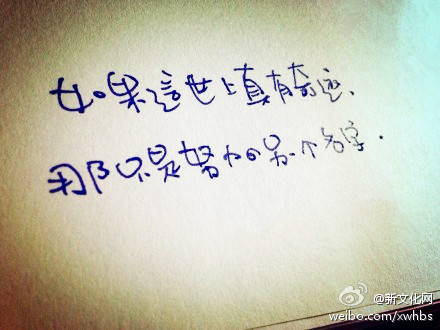 如果這世上真有奇迹、
那只是努力的另一个名字.
@新文化网
weibo.com/xwhbs